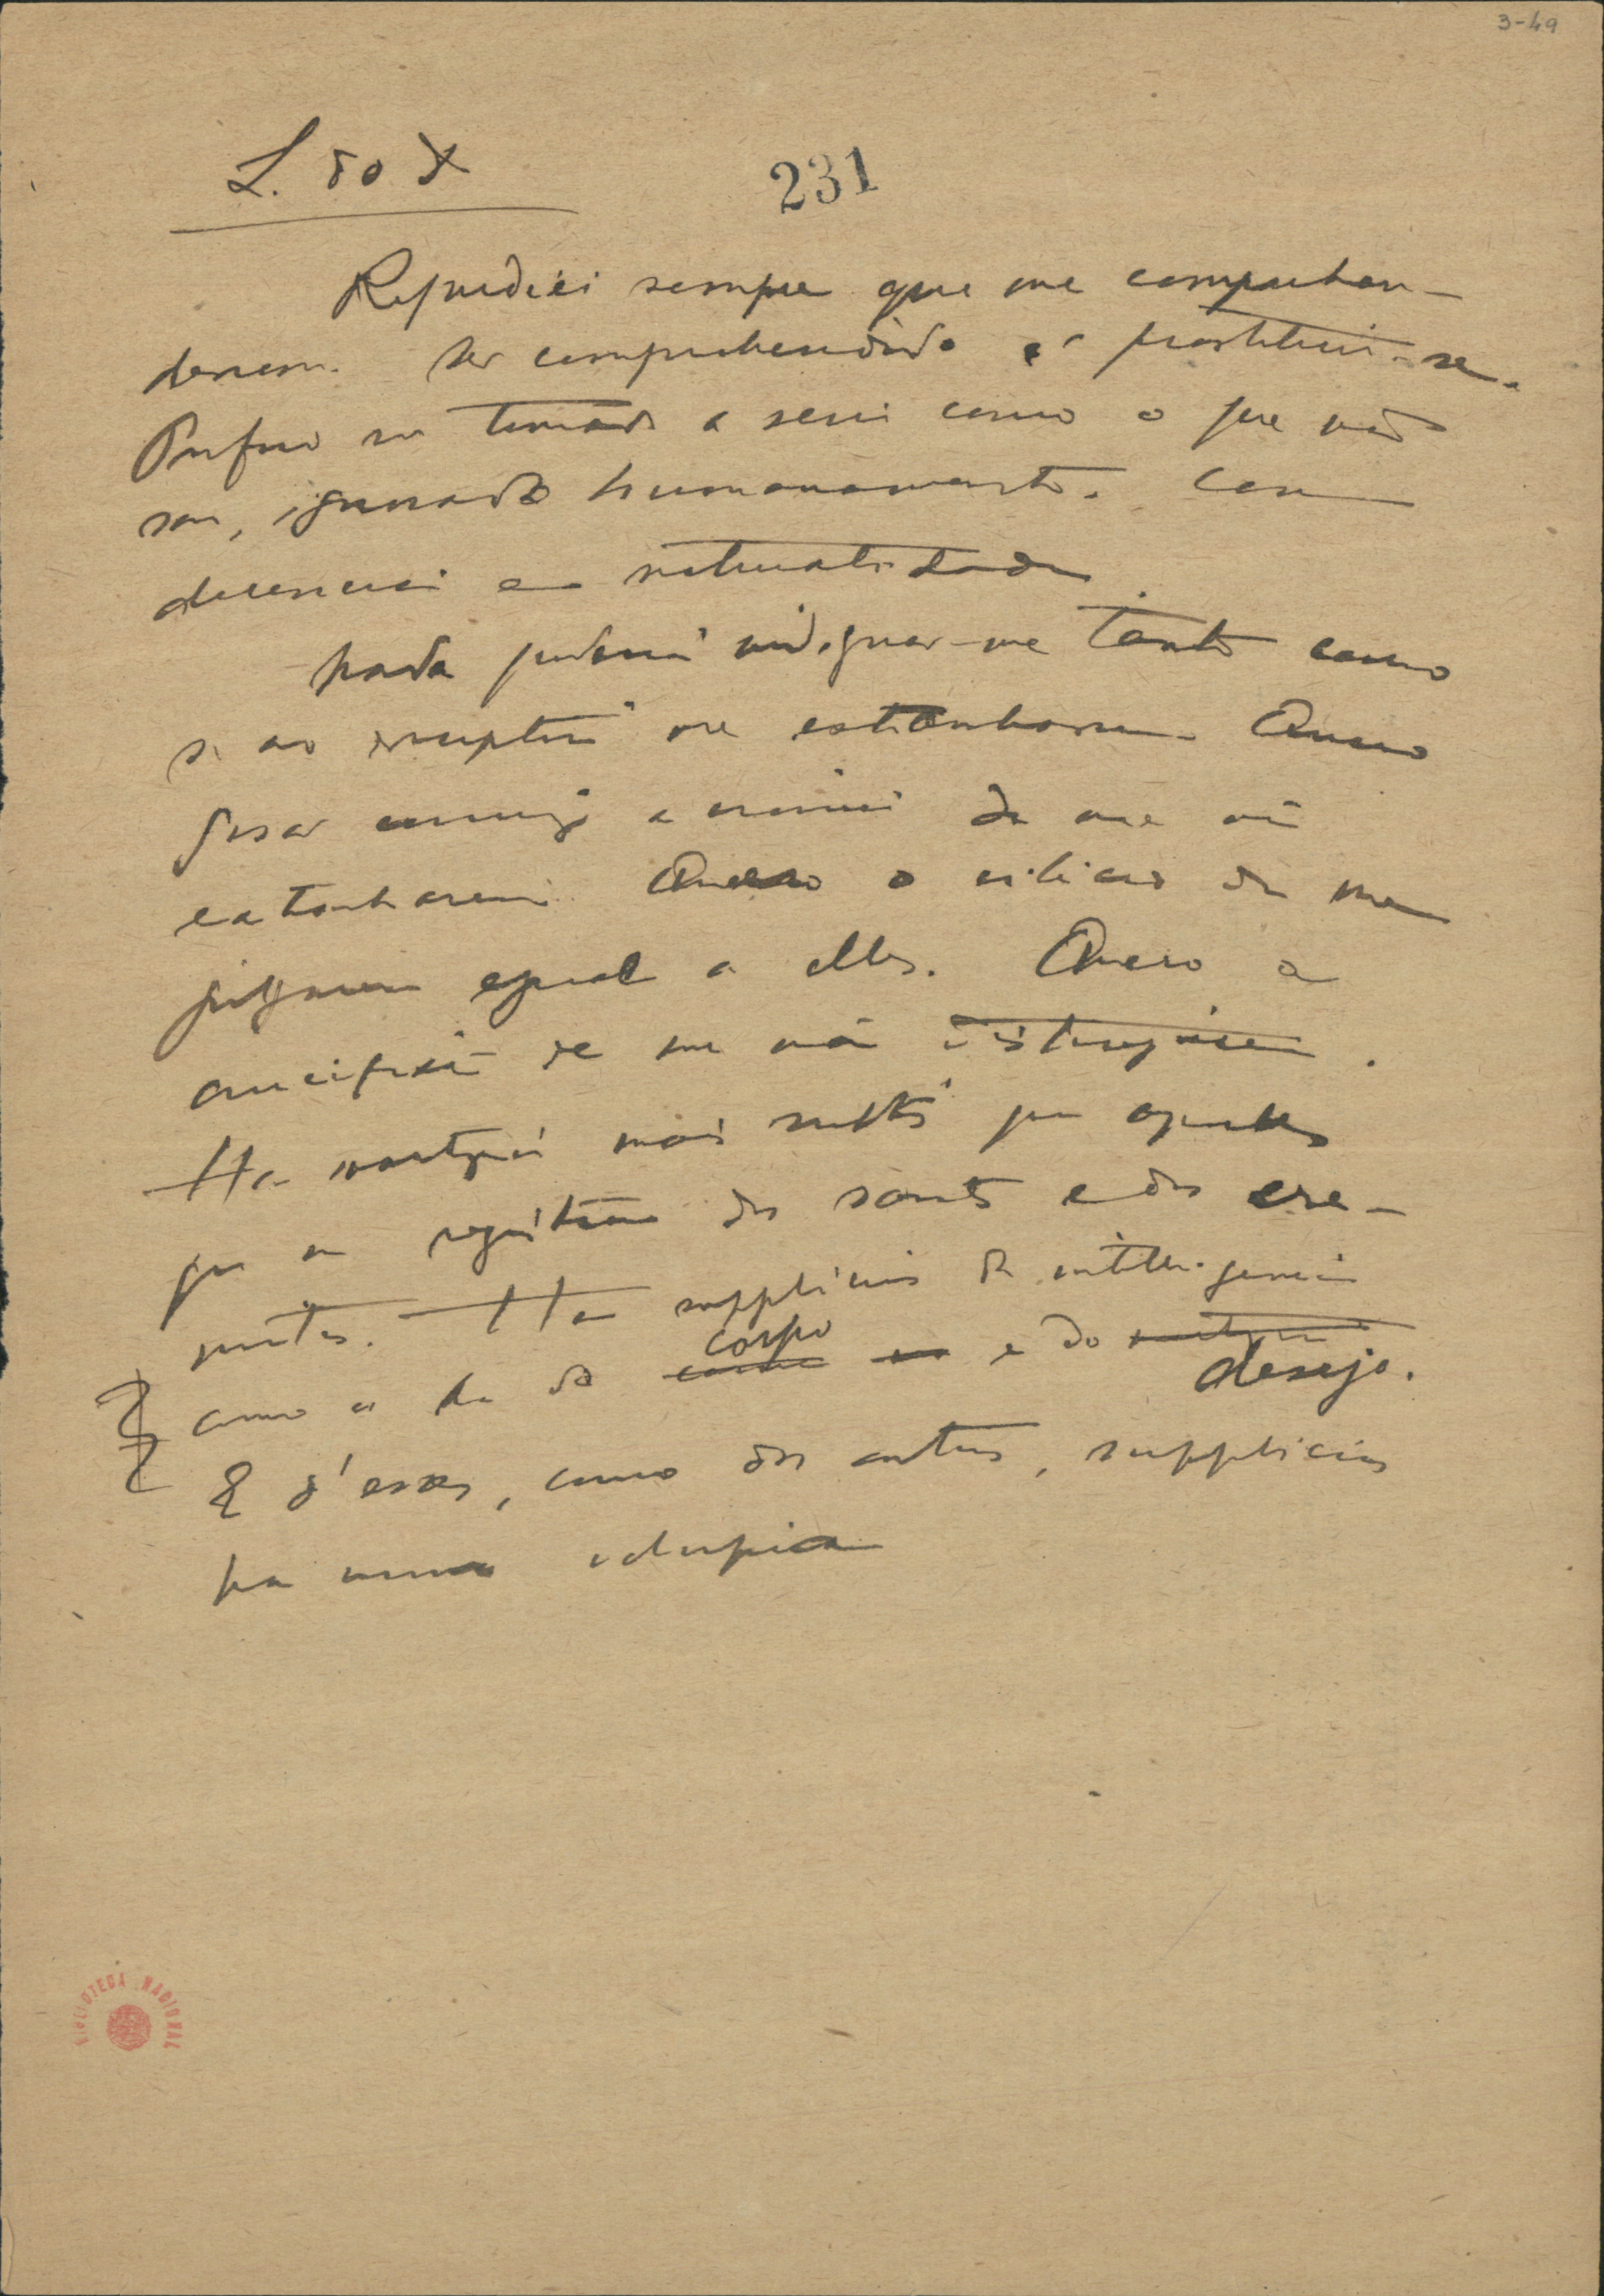 3-49
L. do D.
231
Repudiei sempre que me comprehen-
dessem. Ser comprehendido é prostituir-se.
Prefiro ser tomado a serio como o que não
sou, ignorado humanamente, com
decencia e naturalidade
Nada poderia indignar-me tanto como
se no escriptorio me extranhassem. Quero
gosar commigo a ironia de me não
extranharem. Quero o cilicio de me
julgarem egual a elles. Quero a
crucifixão de me não distinguirem.
Ha martyrios mais subtis que aquelles
que se registam dos santos e dos ere-
mitas. Ha supplicios da intelligencia
corpo
como os ha do e do
desejo.
E d'esses, como dos outros, supplicios
ha uma volupia
BIBLIOTECA NACIONAL